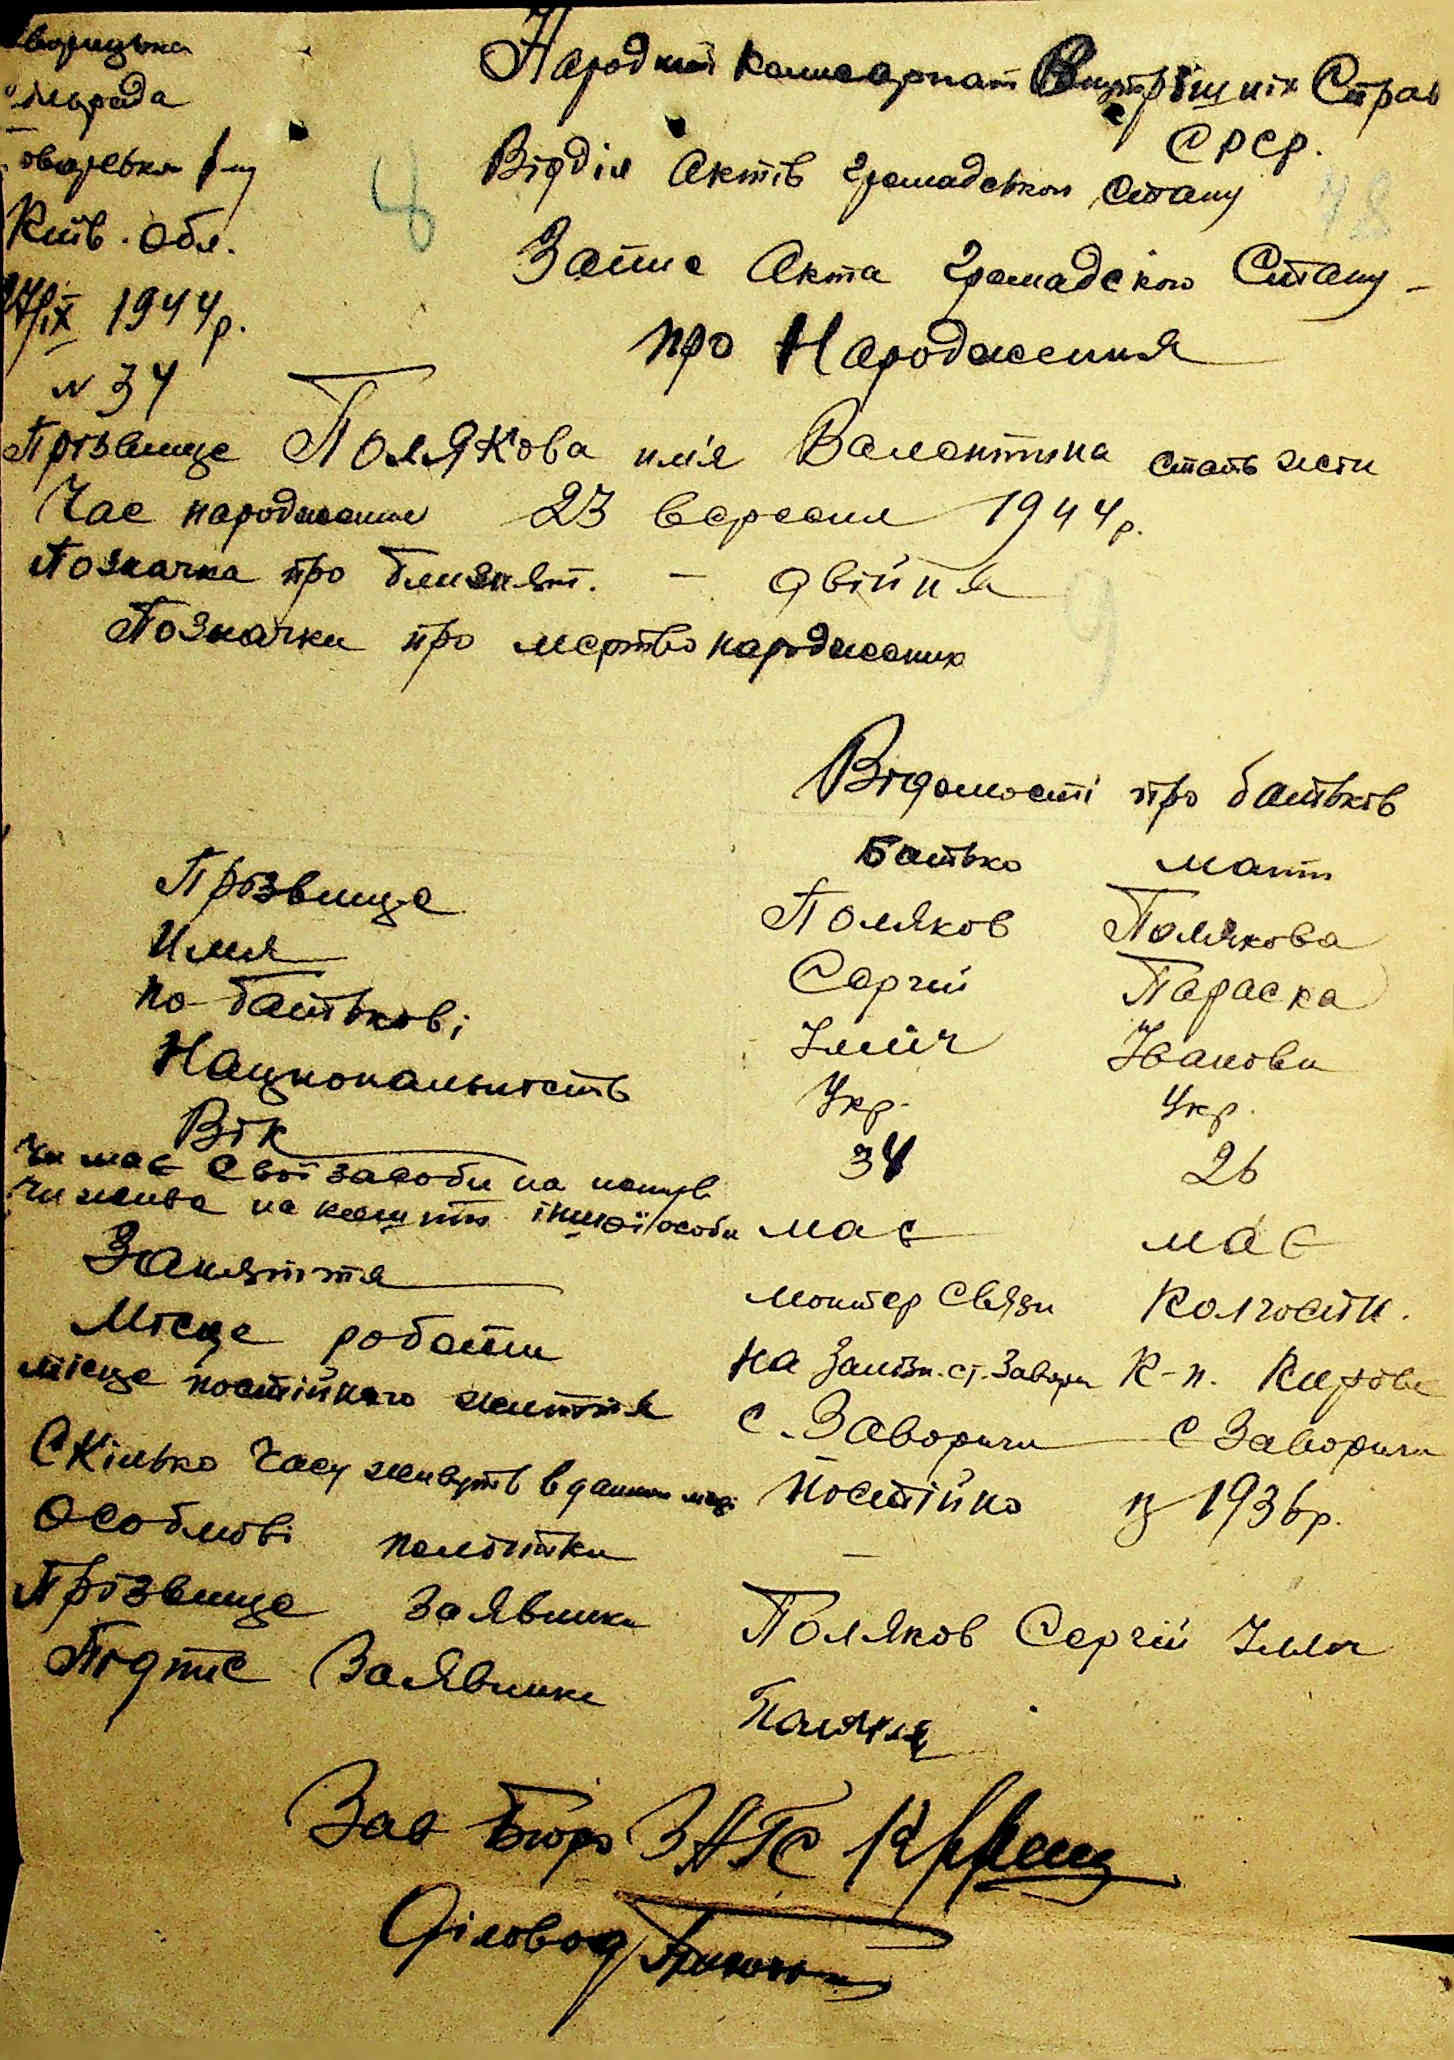 Народний Комисариат Внутрішніх Справ
СРСР.
Відділ Актів громадського стану
Запис Акта Громадского Стану
про Народження
сільрада
Київ. обл.
27/ІХ 1944р.
N 34
Прізвище Полякова имя Валентина стать жен
Час народження 23 вересня 1944р.
Позначка про близнят. - двійня
Позначки про мертвонароджених
Відомості про батьків
Батько мати
Прізвище Поляков Полякова
Имя Сергій Параска
по батькові Ілліч Іванови
Национальность Укр. Укр.
Вік 34 26
Чи має свої засоби на
Чи живе на кошти іншої особи має має
Заняття монтер связи Колгоспн.
Місце роботи на Залізн. ст. Завори К-п. Кирова
місце постійного життя с. Заворичи с Заворичи
Скілько часу живуть в данном місці постійно з 1936р.
Особливі помітки -
Прізвище заявника Поляков Сергій Ілліч
Підпис Заявника
Зав Бюро ЗАГС
Діловод